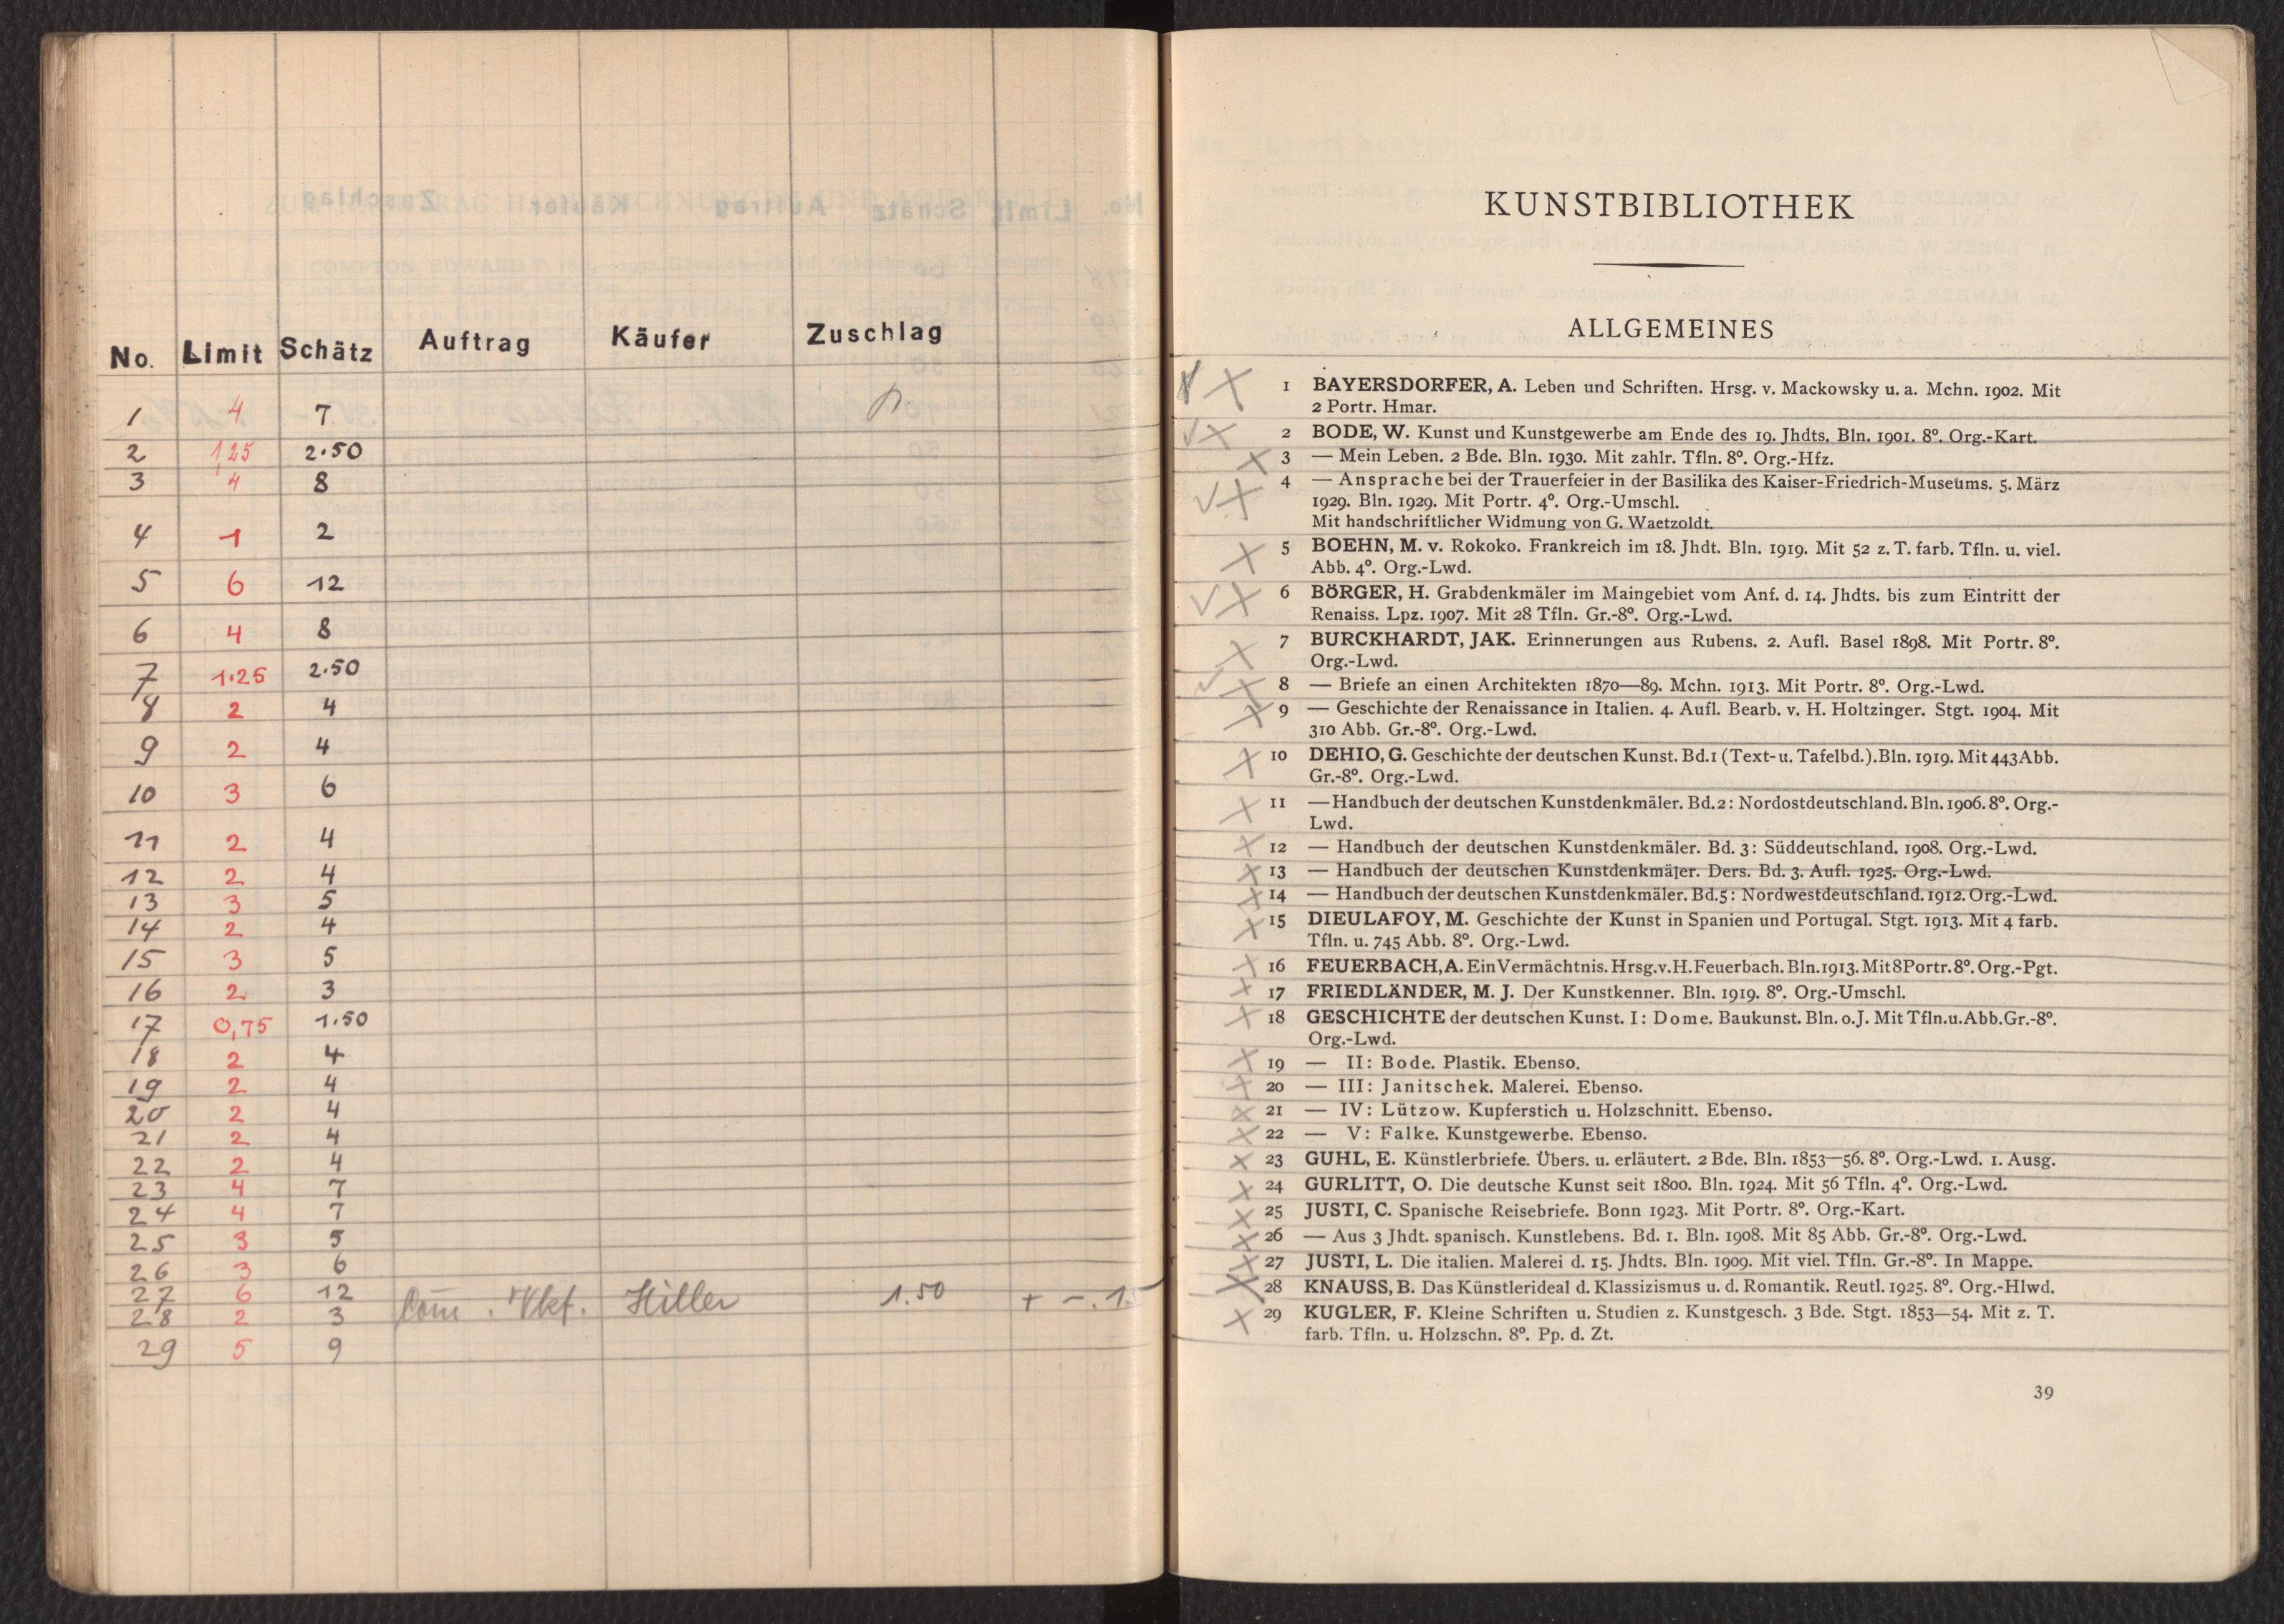 No. Limit Schätz Auftrag Käufer Zuschlag
1 4 7
2 1,25 2.50
3 4 8
4 1 2
5 6 12
6 4 8
7 1.25 2.50
8 2 4
9 2 4
10 3 6
11 2 4
12 2 4
13 3 5
14 2 4
15 3 5
16 2 3
17 0,75 1.50
18 2 4
19 2 4
20 2 4
21 2 4
22 2 4
23 4 7
24 4 7
25 3 5
26 3 6
27 6 12
28 2 3 Vkf. Hiller 1.50
29 5 9
KUNSTBIBLIOTHEK
ALLGEMEINES
1 BAYERSDORFER, A. Leben und Schriften. Hrsg. v. Mackowsky u. a. Mchn. 1902. Mit
2 Portr. Hmar.
2 BODE, W. Kunst und Kunstgewerbe am Ende des 19. Jhdts. Bln. 1901. 8°. Org.-Kart.
3 — Mein Leben. 2 Bde. Bln. 1930. Mit zahlr. Tfln. 8°. Org.-Hfz.
4 — Ansprache bei der Trauerfeier in der Basilika des Kaiser-Friedrich-Museums. 5. März
1929. Bln. 1929. Mit Portr. 4°. Org.-Umschl.
Mit handschriftlicher Widmung von G. Waetzoldt.
5 BOEHN, M. v. Rokoko. Frankreich im 18. Jhdt. Bln. 1919. Mit 52 z. T. farb. Tfln. u. viel.
Abb. 4°. Org.-Lwd.
6 BÖRGER, H. Grabdenkmäler im Maingebiet vom Anf. d. 14. Jhdts. bis zum Eintritt der
Renaiss. Lpz. 1907. Mit 28 Tfln. Gr.-8°. Org.-Lwd.
7 BURCKHARDT, JAK. Erinnerungen aus Rubens. 2. Aufl. Basel 1898. Mit Portr. 8°.
Org.-Lwd.
8 — Briefe an einen Architekten 1870—89. Mchn. 1913. Mit Portr. 8°. Org.-Lwd.
9 — Geschichte der Renaissance in Italien. 4. Aufl. Bearb. v. H. Holtzinger. Stgt. 1904. Mit
310 Abb. Gr.-8°. Org.-Lwd.
10 DEHIO, G. Geschichte der deutschen Kunst. Bd. 1 (Text- u. Tafelbd.). Bln. 1919. Mit 443 Abb.
Gr.-8°. Org.-Lwd.
11 — Handbuch der deutschen Kunstdenkmäler. Bd. 2: Nordostdeutschland. Bln. 1906. 8°. Org.-
Lwd.
12 — Handbuch der deutschen Kunstdenkmäler. Bd. 3: Süddeutschland. 1908. Org.-Lwd.
13 — Handbuch der deutschen Kunstdenkmäler. Ders. Bd. 3. Aufl. 1925. Org.-Lwd.
14 — Handbuch der deutschen Kunstdenkmäler. Bd. 5: Nordwestdeutschland. 1912. Org.-Lwd.
15 DIEULAFOY, M. Geschichte der Kunst in Spanien und Portugal. Stgt. 1913. Mit 4 farb.
Tfln. u. 745 Abb. 8°. Org.-Lwd.
16 FEUERBACH, A. Ein Vermächtnis. Hrsg. v. H. Feuerbach. Bln. 1913. Mit 8 Portr. 8°. Org.-Pgt.
17 FRIEDLÄNDER, M. J. Der Kunstkenner. Bln. 1919. 8°. Org.-Umschl.
18 GESCHICHTE der deutschen Kunst. I: Dome. Baukunst. Bln. o. J. Mit Tfln. u. Abb. Gr.-8°.
Org.-Lwd.
19 — II: Bode. Plastik. Ebenso.
20 — III: Janitschek. Malerei. Ebenso.
21 — IV: Lützow. Kupferstich u. Holzschnitt. Ebenso.
22 — V: Falke. Kunstgewerbe. Ebenso.
23 GUHL, E. Künstlerbriefe. Übers. u. erläutert. 2 Bde. Bln. 1853—56. 8°. Org.-Lwd. 1. Ausg.
24 GURLITT, O. Die deutsche Kunst seit 1800. Bln. 1924. Mit 56 Tfln. 4°. Org.-Lwd.
25 JUSTI, C. Spanische Reisebriefe. Bonn 1923. Mit Portr. 8°. Org.-Kart.
26 — Aus 3 Jhdt. spanisch. Kunstlebens. Bd. 1. Bln. 1908. Mit 85 Abb. Gr.-8°. Org.-Lwd.
27 JUSTI, L. Die italien. Malerei d. 15. Jhdts. Bln. 1909. Mit viel. Tfln. Gr.-8°. In Mappe.
28 KNAUSS, B. Das Künstlerideal d. Klassizismus u. d. Romantik. Reutl. 1925. 8°. Org.-Hlwd.
29 KUGLER, F. Kleine Schriften u. Studien z. Kunstgesch. 3 Bde. Stgt. 1853—54. Mit z. T.
farb. Tfln. u. Holzschn. 8°. Pp. d. Zt.
39